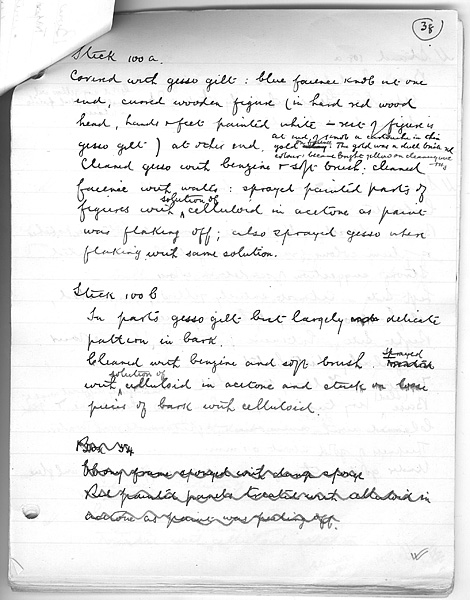 38
Stick 100a.
Covered with gesso gilt : blue faience knob at one
end, curved wooden figure (in hard red wood
head, hands & feet painted white – rest of figure is
gesso gilt) at other end.
gold. The gold was a dull brick red
colour : became bright yellow on cleaning
Cleaned gesso with benzine & soft brush : cleaned
faience with water : sprayed painted parts of
solution of
figures with celluloid in acetone as paint
was flaking off; also sprayed gesso where
flaking with same solution.
Stick 100b
In parts gesso gilt but largely delicate
pattern in bark.
Cleaned with benzine and soft brush. Sprayed
solution of
with celluloid in acetone and stuck on loose
pieces of bark with celluloid.
Box 54
Ebony frame sponged with damp sponge
All painted panels treated with celluloid in
acetone as paint was peeling off.